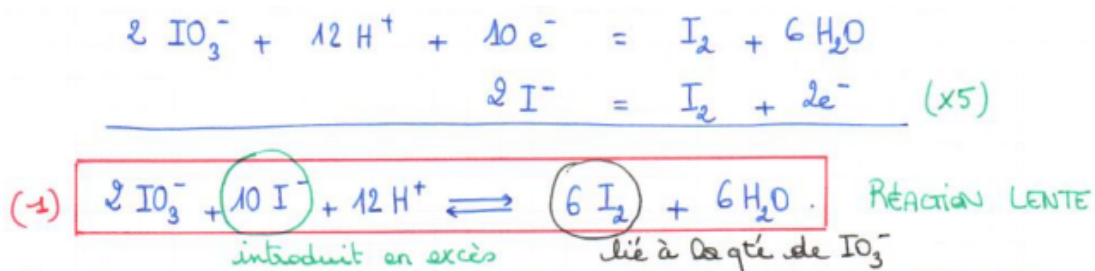 2 IO₃⁻ + 12 H⁺ + 10 e⁻ = I₂ + 6 H₂O
2 I⁻ = I₂ + 2e⁻ (x5)
(1) 2 IO₃⁻ + 10 I⁻ + 12 H⁺ ⇌ 6 I₂ + 6 H₂O . RÉACTION LENTE
introduit en excès lié à la qté de IO₃⁻